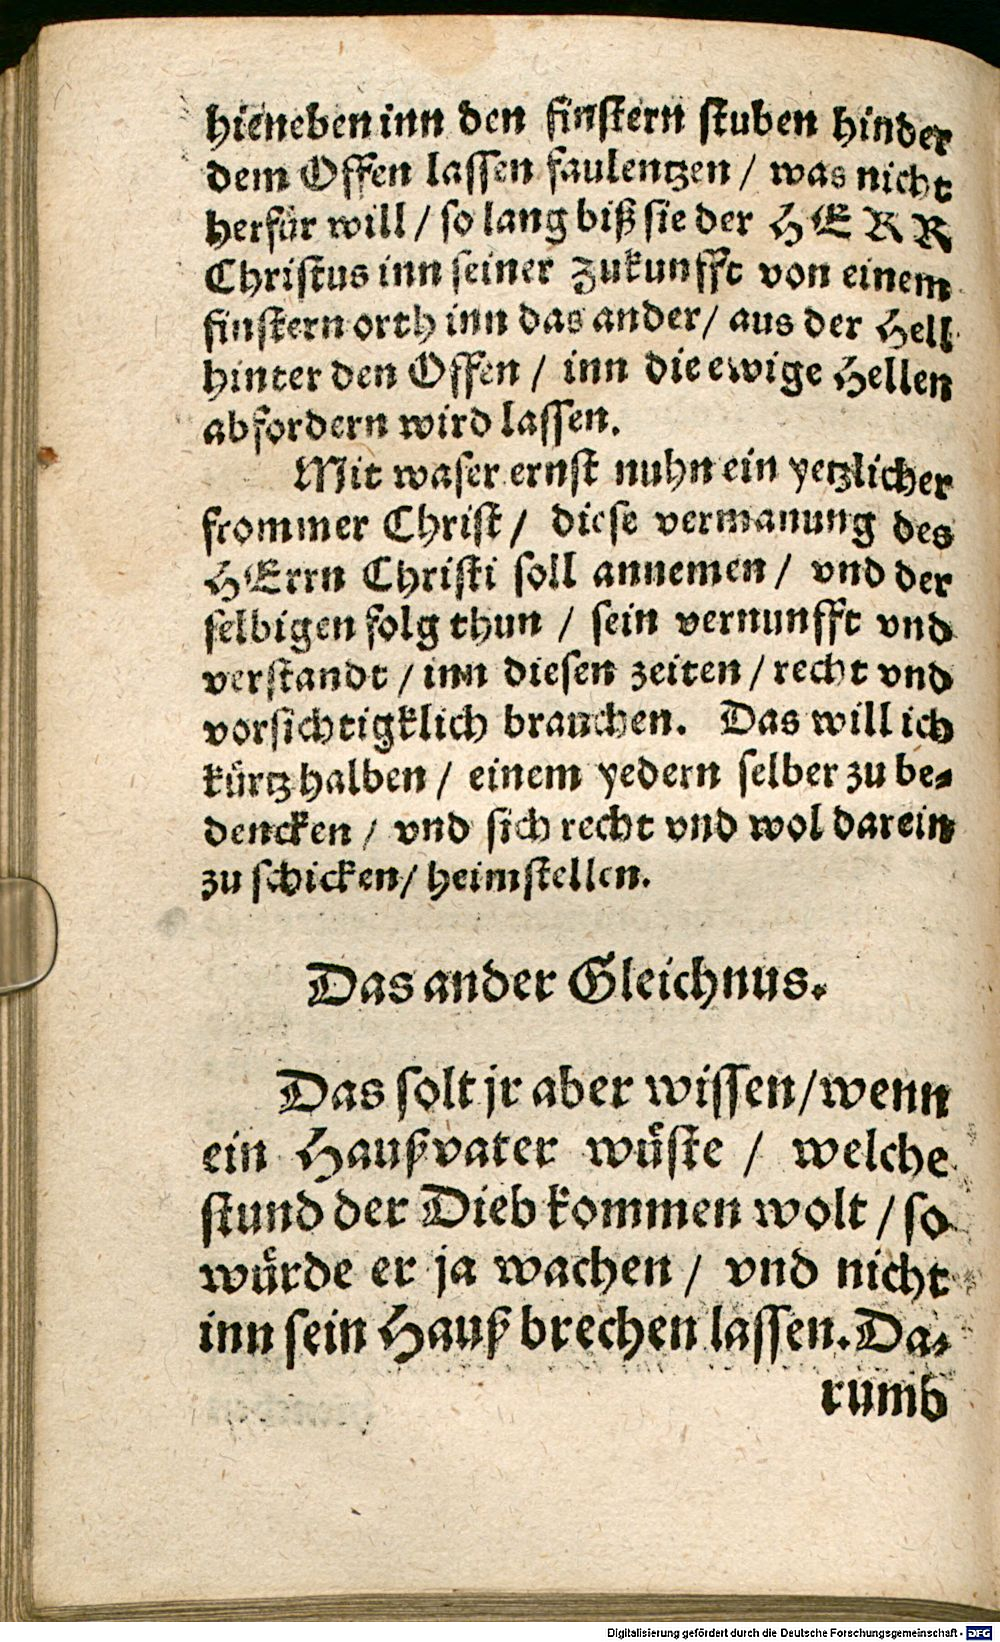 hieneben inn den finstern stuben hinder
dem Offen lassen faulentzen / was nicht
herfür will / so lang biß sie der HERR
Christus inn seiner zukunfft von einem
finstern orth inn das ander / aus der Hell
hinter den Offen / inn die ewige Hellen
abfordern wird lassen.
Mit waser ernst nuhn ein yetzlicher
frommer Christ / diese vermanung des
HErrn Christi soll annemen / vnd der
selbigen folg thun / sein vernunfft vnd
verstandt / inn diesen zeiten / recht vnd
vorsichtigklich brauchen. Das will ich
kürtz halben / einem yedern selber zu be-
dencken / vnd sich recht vnd wol darein
zu schicken / heimstellen.
Das ander Gleichnus.
Das solt jr aber wissen / wenn
ein Haußvater wüste / welche
stund der Dieb kommen wolt / so
würde er ja wachen / vnd nicht
inn sein Hauß brechen lassen. Da-
rumb
Digitalisierung gefördert durch die Deutsche Forschungsgemeinschaft - DFG